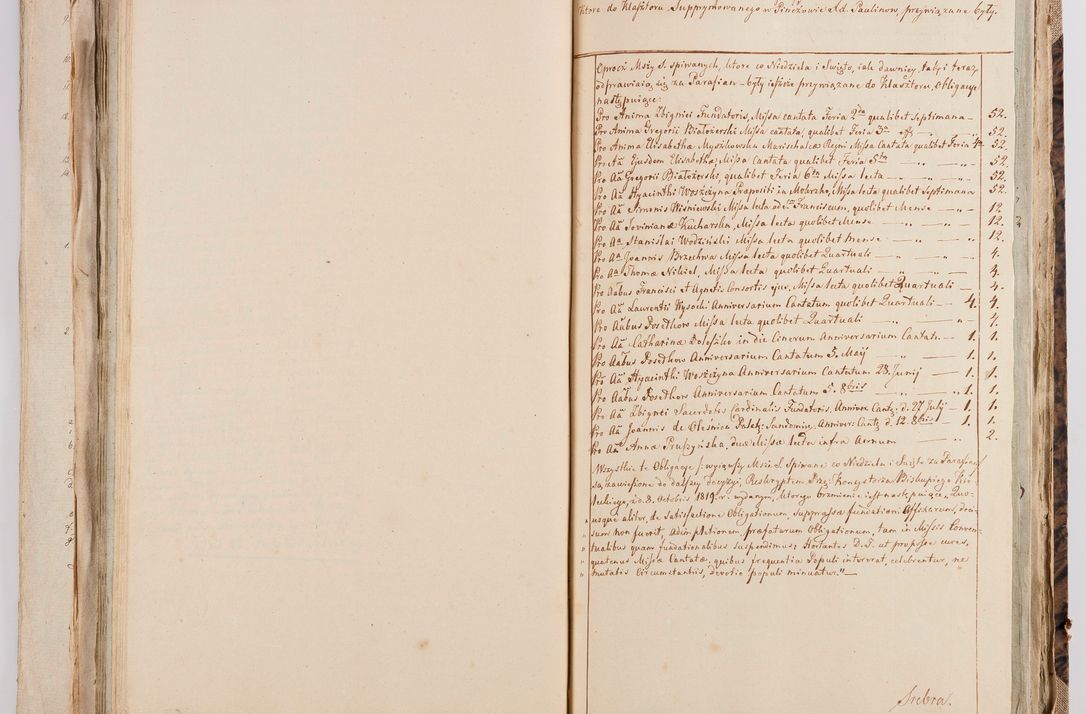 które do Klasztoru Supprymowanego w Pinczowie Xd. Paulinow, przywiązane były.
Oprocz Mszy S. spiwanych, które co Niedziela i Swięto, iale dawniey, tak y i teraz
odprawiaią się za Parafian – były ieszcze przywiązane do Klasztoru, Obligacye
następuiące:
Pro Anima Zbignei Fundatoris, Missa cantata Feria 2da qualibet Septimana — 52.
Pro Anima Gregorii Białożerski Missa cantata, qualibet Feria 3a — „ — 52.
Pro Anima Elisabethæ Myszkowska Marischalcæ Regni Missa Cantata qualibet Feria 4a 52.
Pro Aā Ejusdem Elisabethæ, Missa Cantata qualibet Feria 5ta — „ — „ — 52.
Pro Aā Gregorii Białożerski, qualibet Feria 6ta Missa lecta — „ — „ — 52.
Pro Aā Hyacinthi Woszczyna Præpositi in Mokrzko, Missa lecta qualibet Septimana 52.
Pro Aā Simonis Wiśniewski Missa lecta ad S. Franciscum, quolibet Mense — „ — 12.
Pro Aā Jovinianæ Kucharska, Missa lecta quolibet Mense — „ — „ — 12.
Pro Aā Stanislai Wodziński Missa lecta quolibet mense — „ — „ — 12.
Pro Aā Joannis Brzechwa Missa lecta quolibet Quartuali — „ — „ — 4.
Pro Aā Thomæ Nikiel, Missa lecta quolibet Quartuali — „ — „ — 4.
Pro Aābus Francisci et Agnetis Consortis ejus, Missa lecta quolibet Quartuali — 4.
Pro Aā Laurentii Wysocki Anniversarium Cantatum quolibet Quartuali — 4. 4.
Pro Aābus Posethors Missa lecta quolibet Quartuali — „ — „ — 4.
Pro Aā Catharinæ in die Cinerum Anniversarium Cantatu. — 1. 1.
Pro Aābus Posethors Anniversarium Cantatum 5. Maij — „ — 1. 1.
Pro Aā Hyacinthi Woszczyna Anniversarium Cantatum 28. Junij — 1. 1.
Pro Aābus Posethors Anniversarium Cantatum 5. 8bris — „ 1. 1.
Pro Aā Zbignei Sacerdotis Cardinalis Fundatoris. Anniver. Cant: d. 27 July — 1. 1.
Pro Aā Joannis de Olesnica Palat: Sandomir: Annivers Cant: d. 12. 8bris — 1. 1.
Pro Aā Anna Pruszyńska, duæ Missæ lecta infra Annum — „ 2.
Wszystkie te Obligacye /: wyiąwszy Msze S. Spiwane co Niedziela i Święto za Parafian/
są zawieszone do dalszey decyzyi, Reskryptem Prze: Konsystorza Biskupiego Kie-
leckiego, z d. 8. Octobris 1819. r. wydanym, którego brzmienie iest następuiące „ Quo-
„ usque aliter, de satisfactione Obligationum, suppressæ fundationi affixarum, deci-
„ sum non fuerit, Adimpletionem, præfatarum Obligationum, tam in Missis Conven-
„ tualibus quam fundationalibus suspendimus; Hortantes D. T. ut proposse curet,
„ quatenus Missæ Cantatæ, quibus frequentia Populi intererat, celebrentur, ne
„ mutatis Circumstantiis, devotio populi minuatur.” —
Srebra.